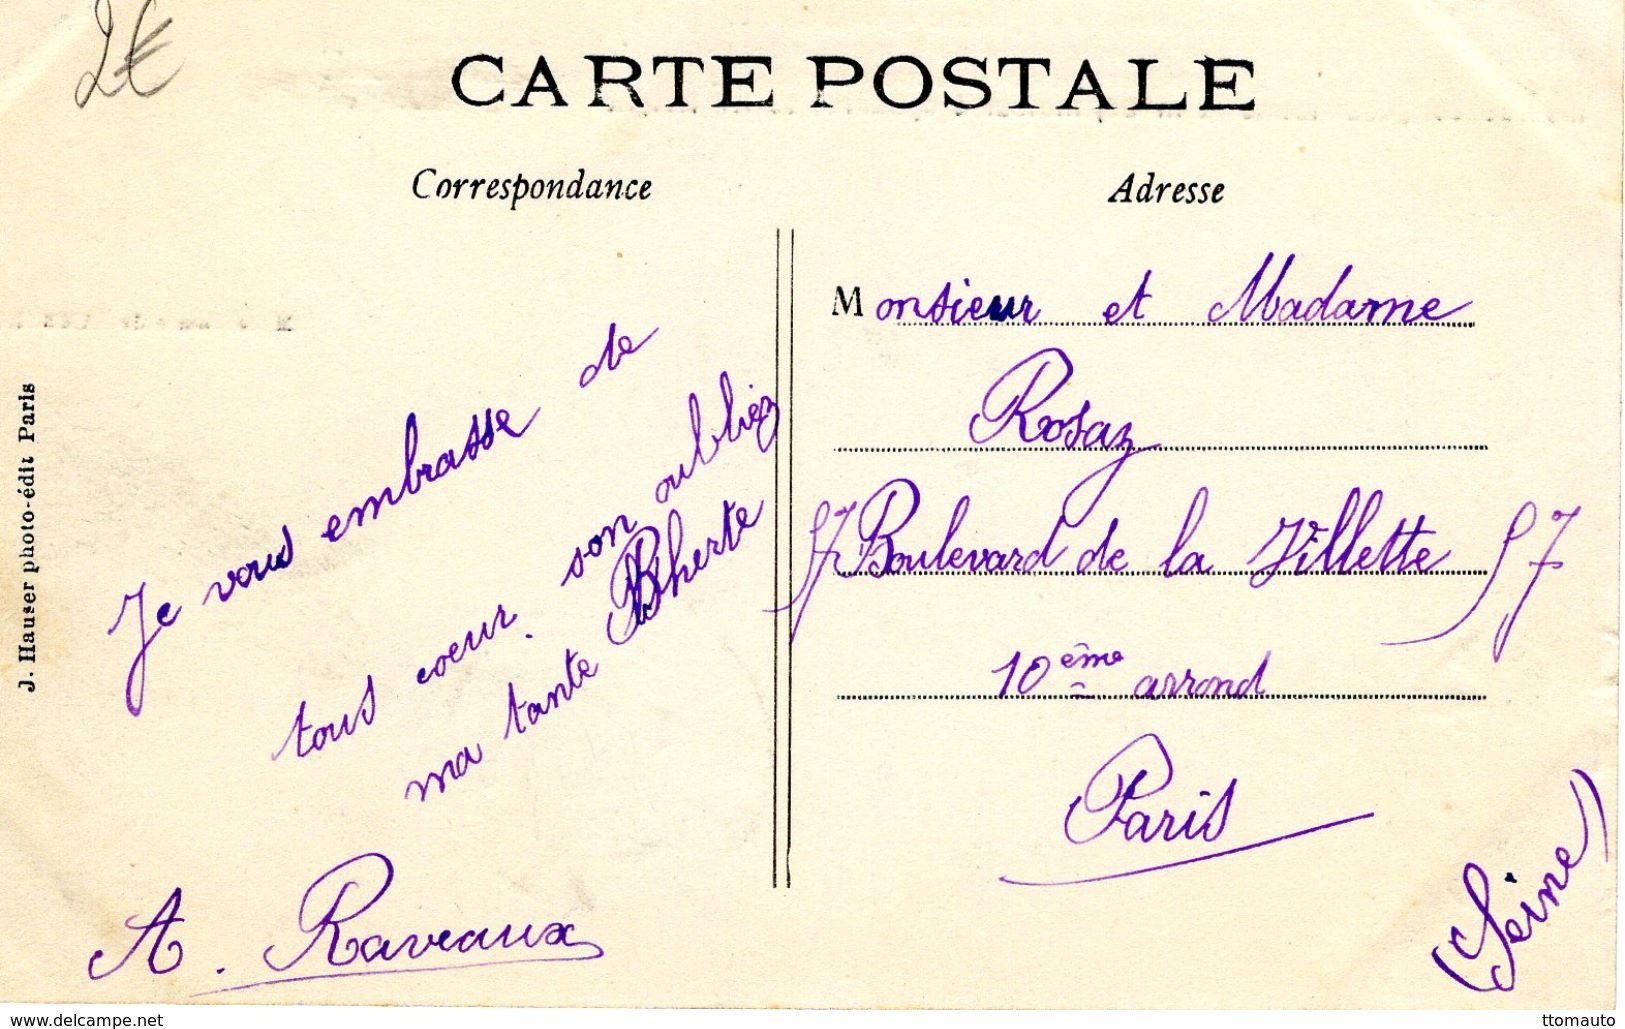 2€
CARTE POSTALE
Correspondance
Adresse
J. Hauser photo-édit Paris
Je vous embrasse de
tous coeur. son oubliez
ma tante Bherte
A. Raveaux
Monsieur et Madame
Rosaz
57 Boulevard de la Villette 57
10ème arrond
Paris
(Seine)
www.delcampe.net
ttomauto